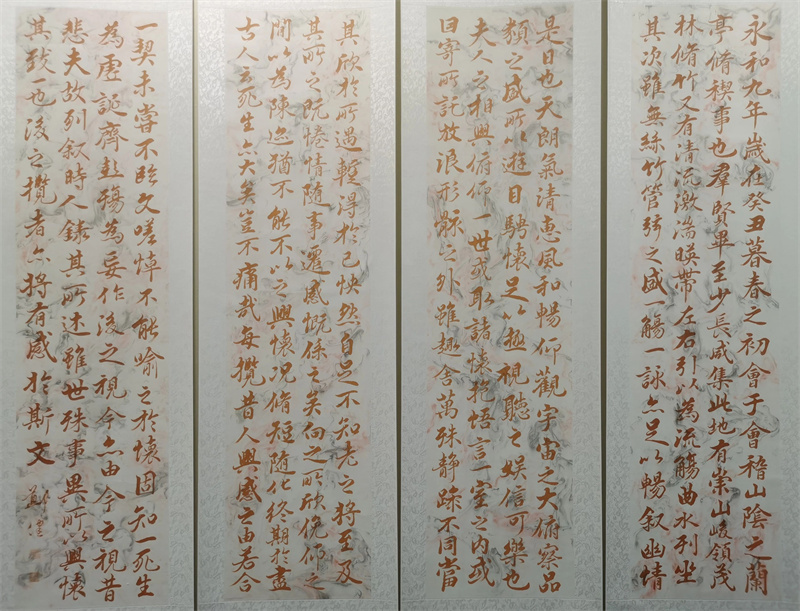 永和九年歲在癸丑暮春之初會于會稽山陰之蘭
亭脩禊事也群賢畢至少長咸集此地有崇山峻領茂
林脩竹又有清流激湍暎帶左右引以為流觴曲水列坐
其次雖無絲竹管弦之盛一觴一詠亦足以暢叙幽情
是日也天朗氣清惠風和暢仰觀宇宙之大俯察品
類之盛所以遊目騁懷足以極視聽之娛信可樂也
夫人之相與俯仰一世或取諸懷抱悟言一室之内或
因寄所託放浪形骸之外雖趣舍萬殊静躁不同當
其欣於所遇蹔得於己怏然自足不知老之將至及
其所之既惓情隨事遷感慨係之矣向之所欣俛仰之
閒以為陳迹猶不能不以之興懷況脩短隨化終期於盡
古人云死生亦大矣豈不痛哉每攬昔人興感之由若合
一契未嘗不臨文嗟悼不能喻之於懷固知一死生
為虛誕齊彭殤為妄作後之視今亦由今之視昔
悲夫故列叙時人錄其所述雖世殊事異所以興懷
其致一也後之攬者亦將有感於斯文